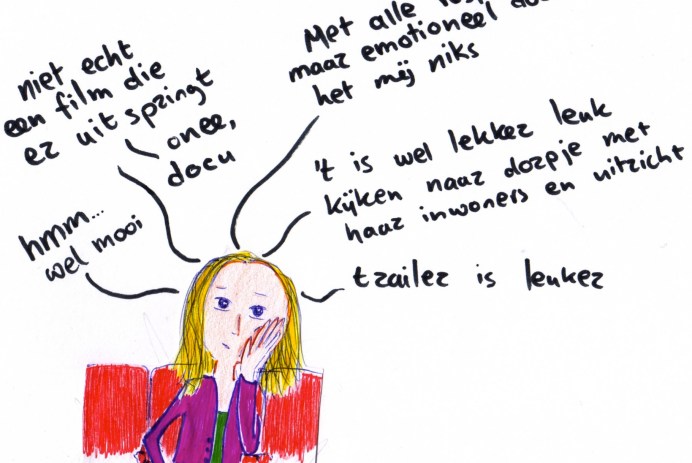 niet echt
een film die
er uit springt
onee,
docu
Met alle
maar emotioneel
het mij niks
't is wel lekker leuk
kijken naar dorpje met
haar inwoners en uitzicht
hmm...
wel mooi
trailer is leuker